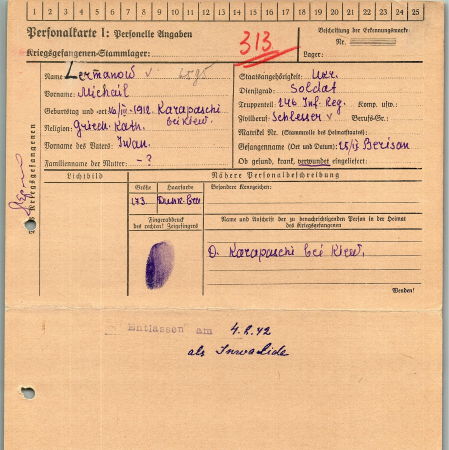 1 2 3 4 5 6 7 8 9 10 11 12 13 14 15 16 17 18 19 20 21 22 23 24 25
Personalkarte I: Personelle Angaben
Kriegsgefangenen-Stammlager:
313
Beschriftung der Erkennungsmarke
Nr.
Lager:
Name: Lermanow v 6595
Vorname: Michail
Geburtstag und -ort 1912 Karapaschi
bei Kiew.
Religion: Griech. Kath.
Vorname des Vaters: Iwan.
Familienname der Mutter: -?
Staatsangehörigkeit: Ukr.
Dienstgrad: Soldat
Truppenteil: 246 Inf. Reg. Komp. usw.:
Zivilberuf: Schlosser v Berufs-Gr.:
Matrikel Nr. (Stammrolle des Heimatstaates):
Gefangennahme (Ort und Datum): Berisan
Ob gesund, krank, verwundet eingeliefert:
des Kriegsgefangenen
Lichtbild
Nähere Personalbeschreibung
Größe
Haarfarbe
Besondere Kennzeichen:
173.
Dunk.
Fingerabdruck
des rechten! Zeigefingers
Name und Anschrift der zu benachrichtigenden Person in der Heimat
des Kriegsgefangenen
D. Karapaschi bei Kiew.
Wenden!
Entlassen am 4.2.42
als Invalide